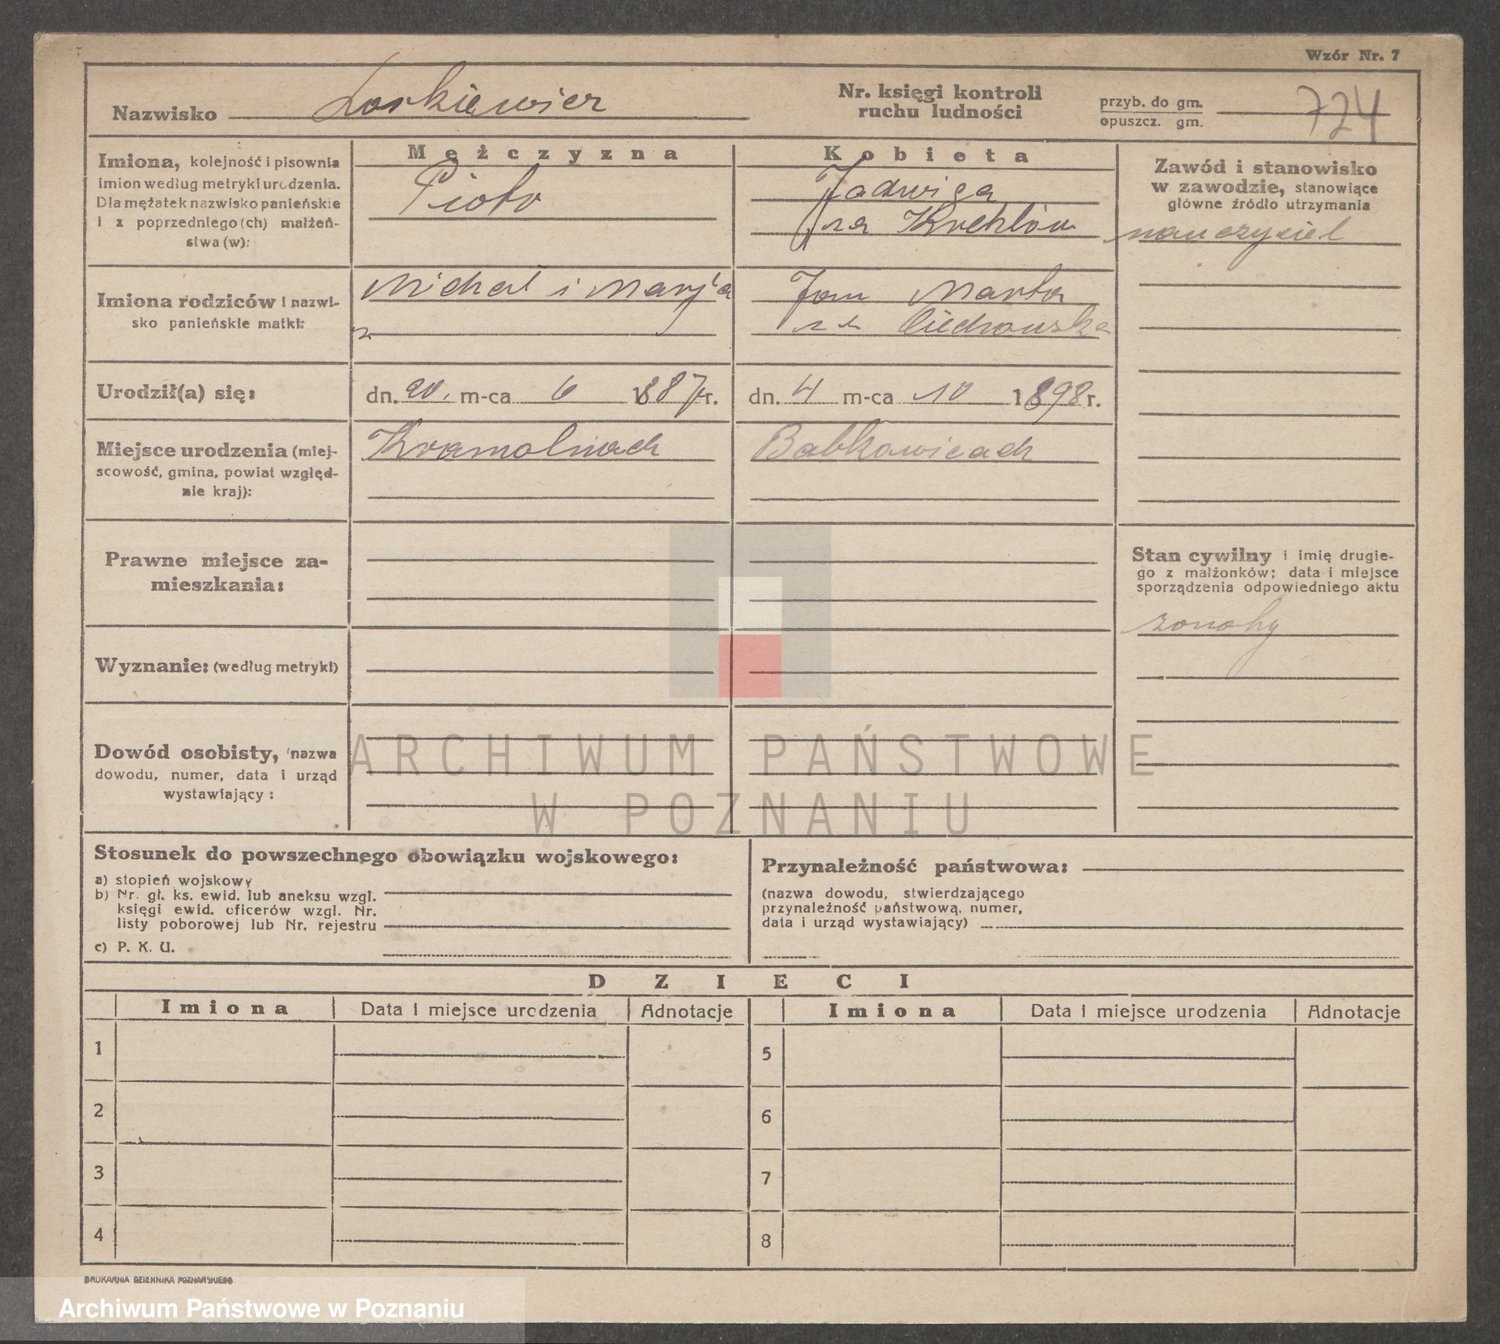 Wzór Nr. 7
Nazwisko
Nr. księgi kontroli
ruchu ludności
przyb. do gm.
opuszcz. gm.
724
Imiona, kolejność i pisownia
imion według metryki urodzenia.
Dla mężatek nazwisko panieńskie
i z poprzedniego (ch) małżeń-
stwa (w):
Mężczyzna
Piotr
Kobieta
Jadwiga
Zawód i stanowisko
w zawodzie, stanowiące
główne źródło utrzymania
nauczyciel
Imiona rodziców i nazwi-
sko panieńskie matki:
Michał i Marja
z
Jan Marta
Urodził(a) się:
dn. 20. m-ca 6 1887 r.
dn. 4 m-ca 10 1898 r.
Miejsce urodzenia (miej-
scowość, gmina, powiat względ-
nie kraj):
Babkowicach
Prawne miejsce za-
mieszkania:
Stan cywilny i imię drugie-
go z małżonków; data i miejsce
sporządzenia odpowiedniego aktu
żonaty
Wyznanie: (według metryki)
Dowód osobisty, nazwa
dowodu, numer, data i urząd
wystawiający:
ARCHIWUM PAŃSTWOWE
W POZNANIU
Stosunek do powszechnego obowiązku wojskowego:
a) stopień wojskowy
b) Nr. gł. ks. ewid. lub aneksu wzgl.
księgi ewid. oficerów wzgl. Nr.
listy poborowej lub Nr. rejestru
c) P. K. U.
Przynależność państwowa:
(nazwa dowodu, stwierdzającego
przynależność państwową, numer,
data i urząd wystawiający)
DZIECI
Imiona Data i miejsce urodzenia Adnotacje Imiona Data i miejsce urodzenia Adnotacje
1 5
2 6
3 7
4 8
DRUKARNIA DZIENNIKA POZNAŃSKIEGO
Archiwum Państwowe w Poznaniu